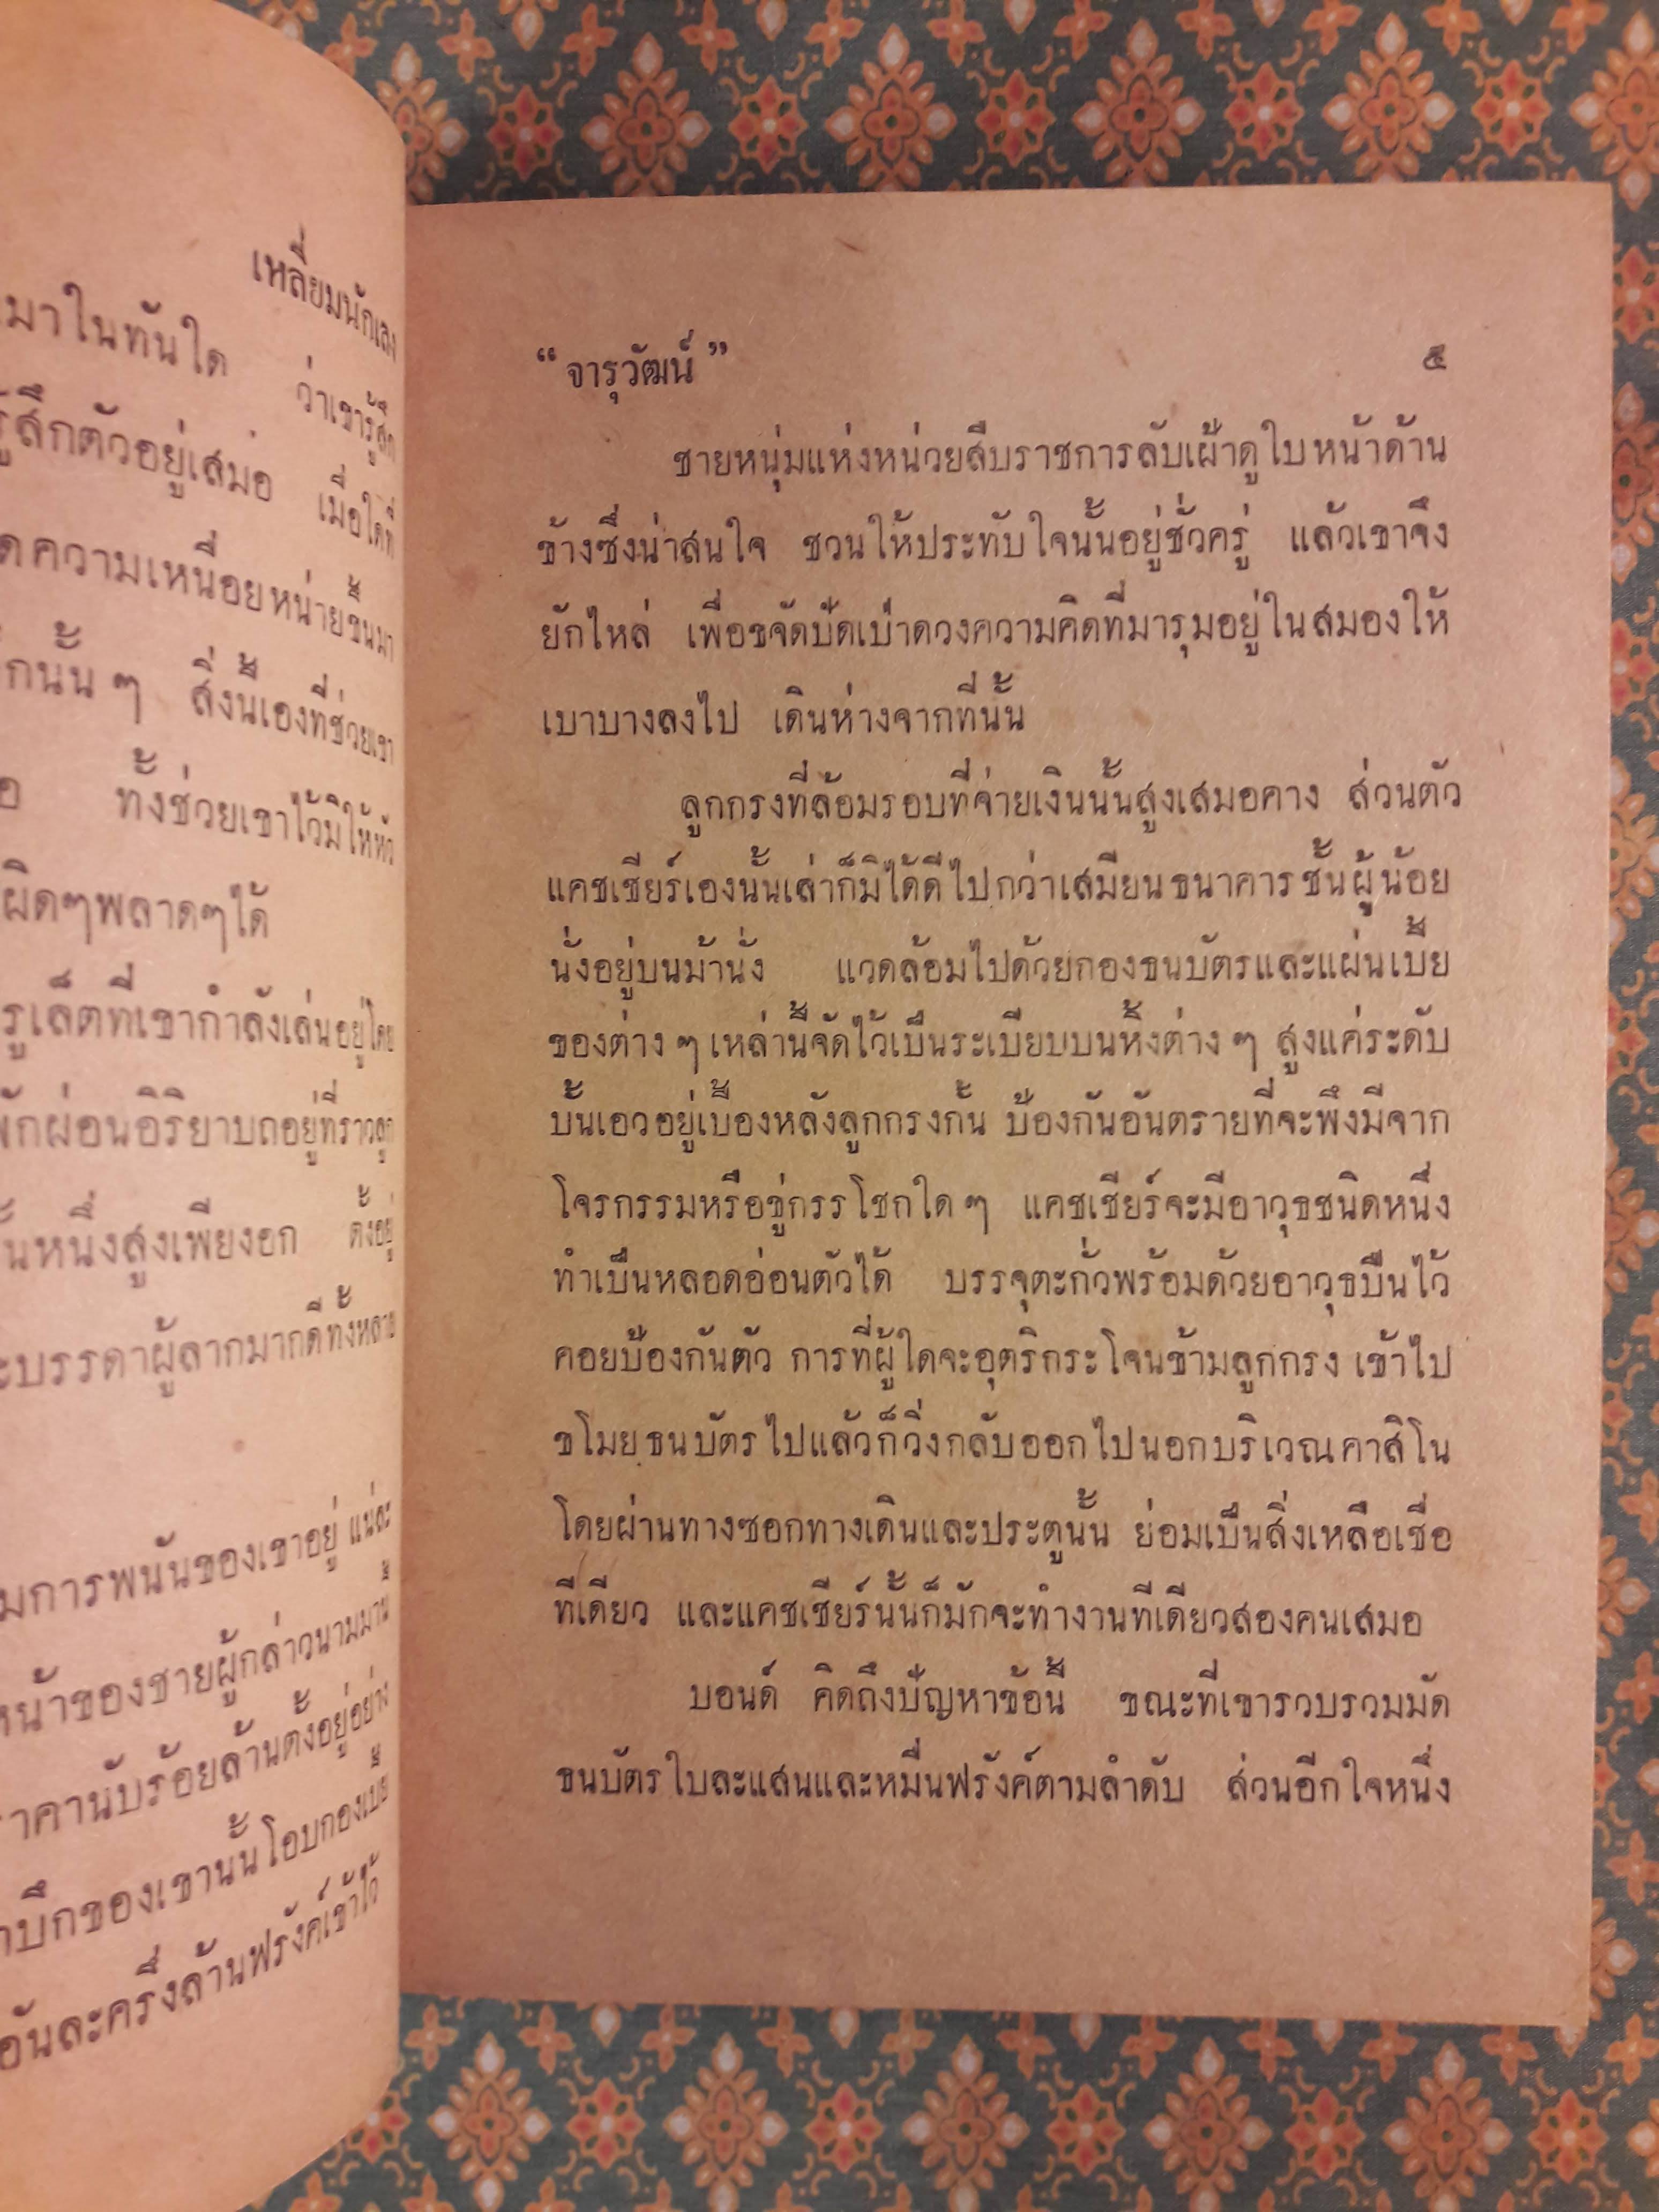 เหลี่ยมนักเลง
มาในทันใด ว่าเขารู้สึก
รู้สึกตัวอยู่เสมอ เมื่อใดที่
ความเหนื่อยหน่ายขึ้นมา
นั้น ๆ สิ่งนี้เองที่ช่วยเขา
ทั้งช่วยเขาไว้มิให้ทัว
ผิดๆพลาดๆได้
รูเล็ตที่เขากำลังเล่นอยู่โดย
พักผ่อนอิริยาบถอยู่ที่ราวลูก
หนึ่งสูงเพียงอก ตั้งอยู่
บรรดาผู้ลากมากดีทั้งหลาย
การพนันของเขาอยู่ แน่ละ
หน้าของชายผู้กล่าวนามมานี้
ราคานับร้อยล้านตั้งอยู่อย่าง
บึกของเขานั้นโอบกองเบี้ย
อันละครึ่งล้านฟรังค์เข้าไว้
“ จารุวัฒน์ ” ๕
ชายหนุ่มแห่งหน่วยสืบราชการลับเฝ้าดูใบหน้าด้าน
ข้างซึ่งน่าสนใจ ชวนให้ประทับใจนั้นอยู่ชั่วครู่ แล้วเขาจึง
ยักไหล่ เพื่อขจัดปัดเป่าดวงความคิดที่มารุมอยู่ในสมองให้
เบาบางลงไป เดินห่างจากที่นั้น
ลูกกรงที่ล้อมรอบที่จ่ายเงินนั้นสูงเสมอคาง ส่วนตัว
แคชเชียร์เองนั้นเล่าก็มิได้ดีไปกว่าเสมียนธนาคารชั้นผู้น้อย
นั่งอยู่บนม้านั่ง แวดล้อมไปด้วยกองธนบัตรและแผ่นเบี้ย
ของต่าง ๆ เหล่านี้จัดไว้เป็นระเบียบบนหิ้งต่าง ๆ สูงแค่ระดับ
บั้นเอวอยู่เบื้องหลังลูกกรงกั้น ป้องกันอันตรายที่จะพึงมีจาก
โจรกรรมหรือขู่กรรโชกใด ๆ แคชเชียร์จะมีอาวุธชนิดหนึ่ง
ทำเป็นหลอดอ่อนตัวได้ บรรจุตะกั่วพร้อมด้วยอาวุธปืนไว้
คอยป้องกันตัว การที่ผู้ใดจะอุตริกระโจนข้ามลูกกรง เข้าไป
ขโมยธนบัตรไปแล้วก็วิ่งกลับออกไปนอกบริเวณคาสิโน
โดยผ่านทางซอกทางเดินและประตูนั้น ย่อมเป็นสิ่งเหลือเชื่อ
ทีเดียว และแคชเชียร์นั้นก็มักจะทำงานทีเดียวสองคนเสมอ
บอนด์ คิดถึงปัญหาข้อนี้ ขณะที่เขารวบรวมมัด
ธนบัตรใบละแสนและหมื่นฟรังค์ตามลำดับ ส่วนอีกใจหนึ่ง